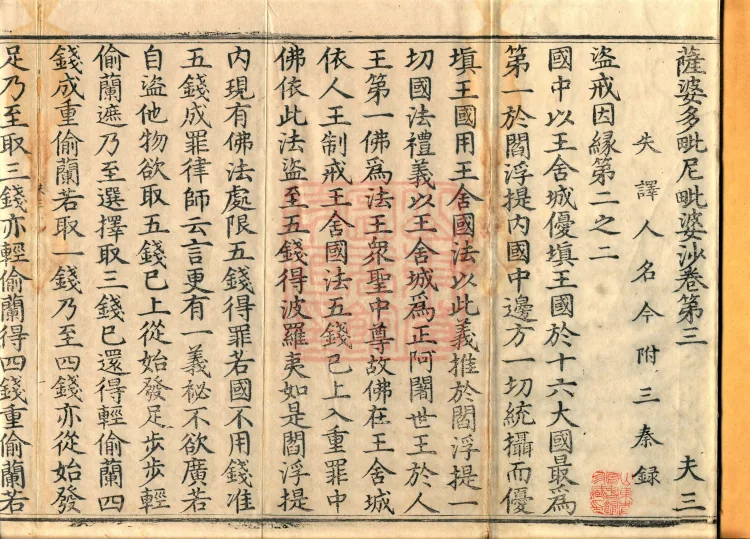 薩婆多毗尼毗婆沙卷第三 夫三
失譯人名今附三秦録
盜戒因緣第二之二
國中以王舍城優填王國於十六大國最爲
第一於閻浮提内國中邊方一切統攝而優
填王國用王舍國法以此義推於閻浮提一
切國法禮義以王舍城爲正阿闍世王於人
王第一佛爲法王衆聖中尊故佛在王舍城
依人王制戒王舍國法五錢已上入重罪中
佛依此法盜至五錢得波羅夷如是閻浮提
内現有佛法處限五錢得罪若國不用錢准
五錢成罪律師云言更有一義秘不欲廣若
自盜他物欲取五錢已上從始發足步步輕
偷蘭遮乃至選擇取三錢已還得輕偷蘭四
錢成重偷蘭若取一錢乃至四錢亦從始發
足乃至取三錢亦輕偷蘭得四錢重偷蘭若